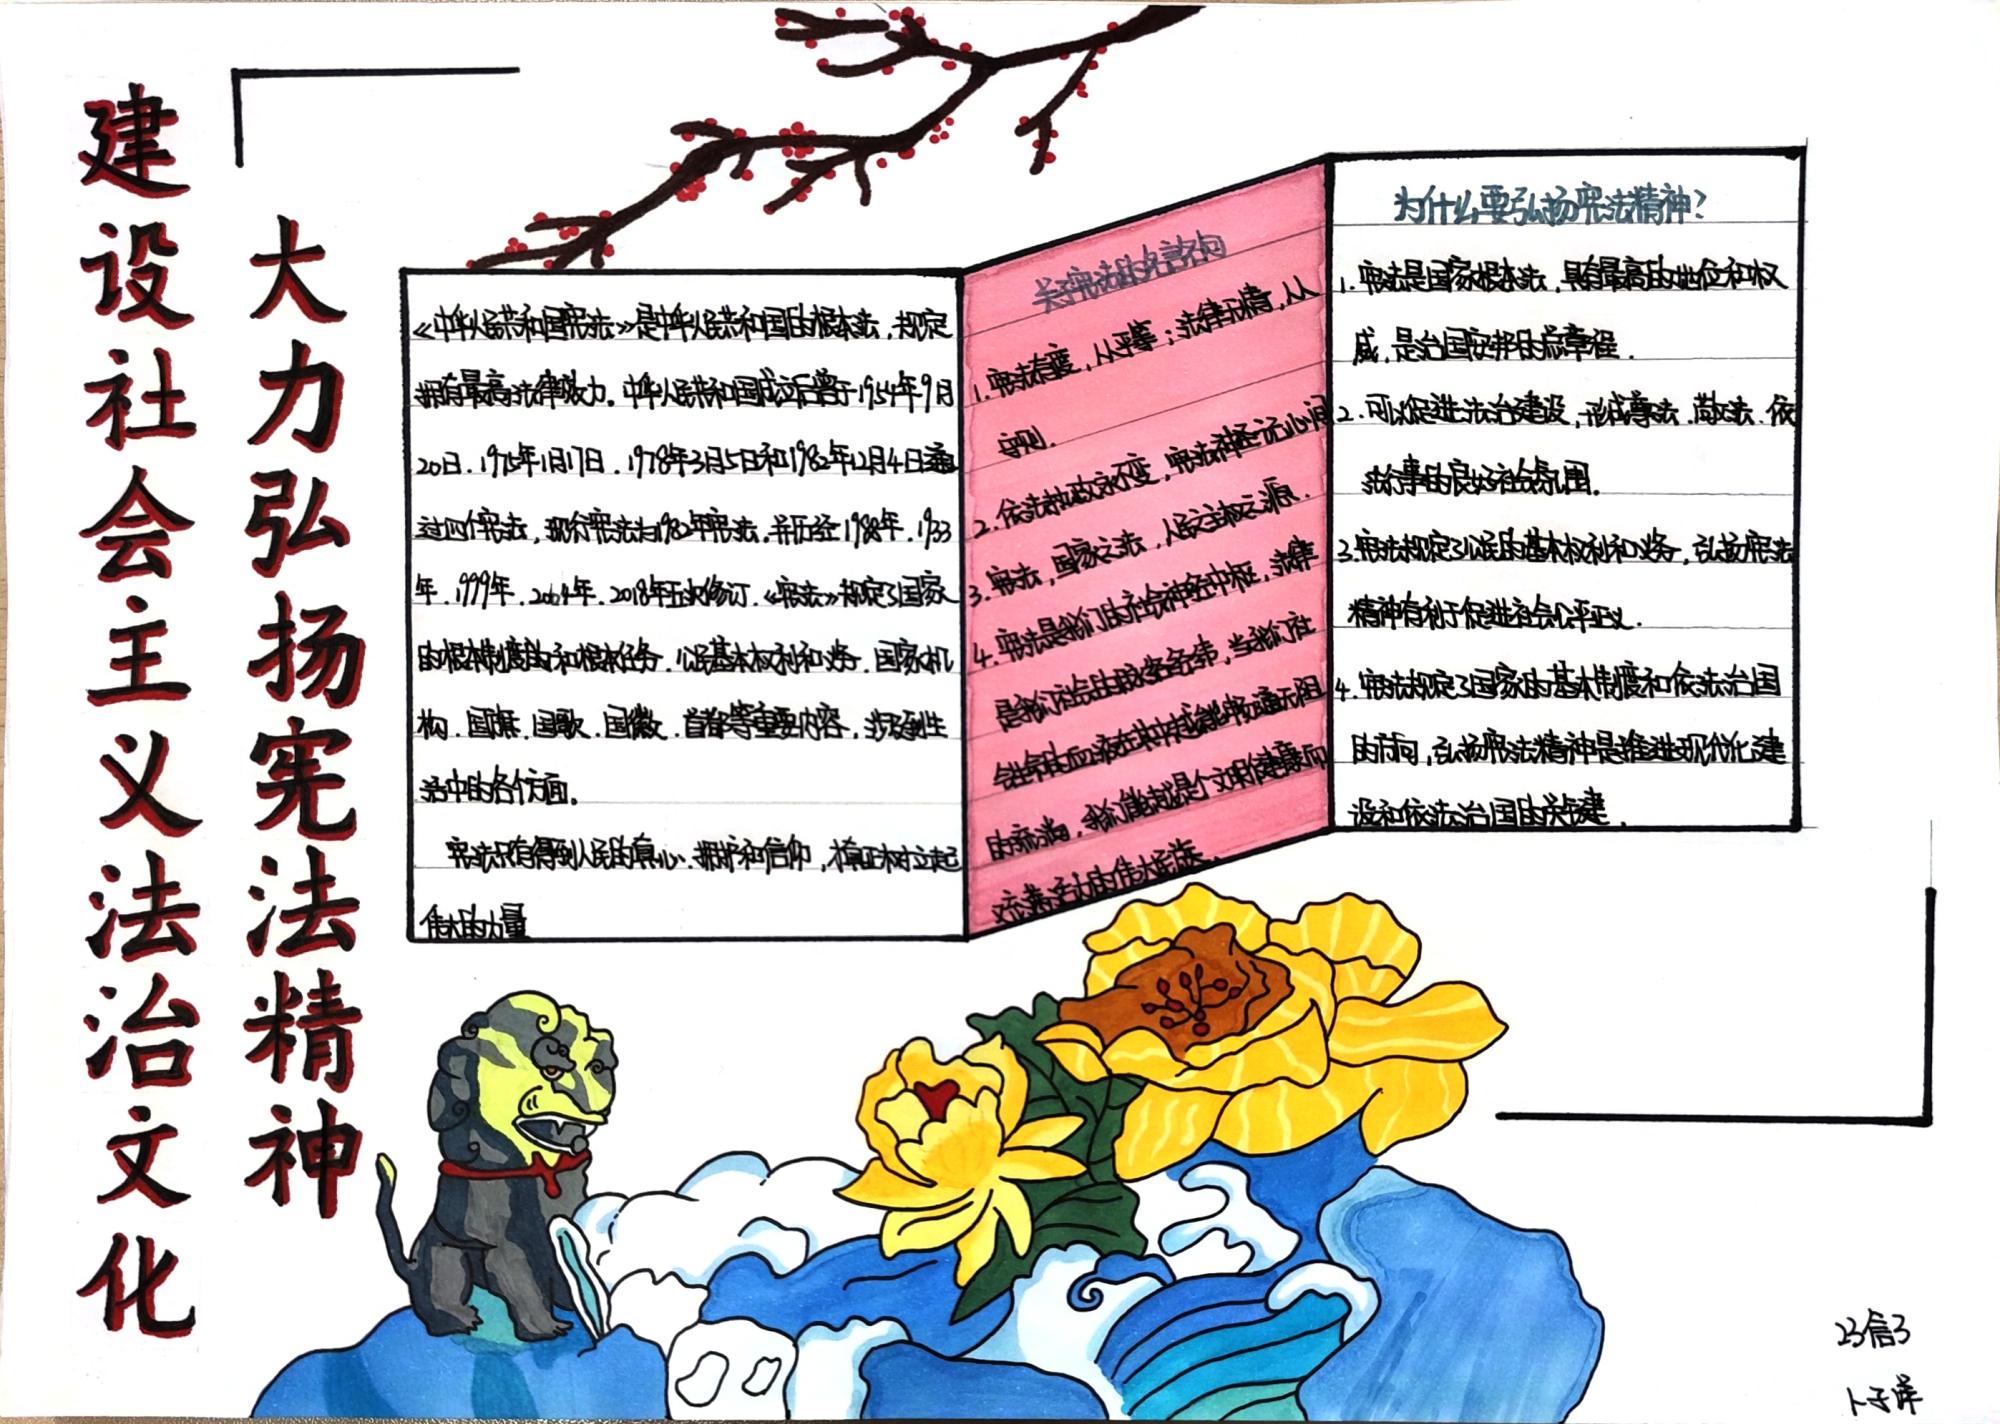 大力弘扬宪法精神
建设社会主义法治文化
《中华人民共和国宪法》是中华人民共和国的根本法，规定
拥有最高法律效力。中华人民共和国成立后曾于1954年9月
20日、1975年1月17日、1978年3月5日和1982年12月4日通
过四个宪法，现行宪法为1982年宪法，并历经1988年、1933
年、1999年、2004年、2018年五次修订.《宪法》规定了国家
的根本制度的和根本任务、公民基本权利和义务、国家机
构、国旗、国歌、国徽、首都等重要内容，涉及到生
活中的各个方面。
宪法只有得到人民的真心、拥护和信仰，才真正树立起
伟大的力量
关于宪法的名言名句
1.宪法有度，从平等；法律无情，从
守则.
2.依法执政永不变，宪法神圣记心间
3.宪法，国家之法，人民之主权之源.
4.宪法是我们的社会神经中枢，法律
是我们社会的脉络经纬，当我们社
会生命的血液在其中越能畅通无阻
的奔淌，我们就越是个文明健康向
又充满活力的伟大民族.
为什么要弘扬宪法精神？
1.宪法是国家根本法，具有最高的地位和权
威，是治国安邦的总章程.
2.可以促进法治建设，形成尊法、崇法、依
法行事的良好社会氛围.
3.宪法规定了公民的基本权利和义务，弘扬宪法
精神有利于促进社会公平正义.
4.宪法规定了国家的基本制度和依法治国
的方向，弘扬宪法精神是推进现代化建
设和依法治国的关键.
23信3
卜子洋